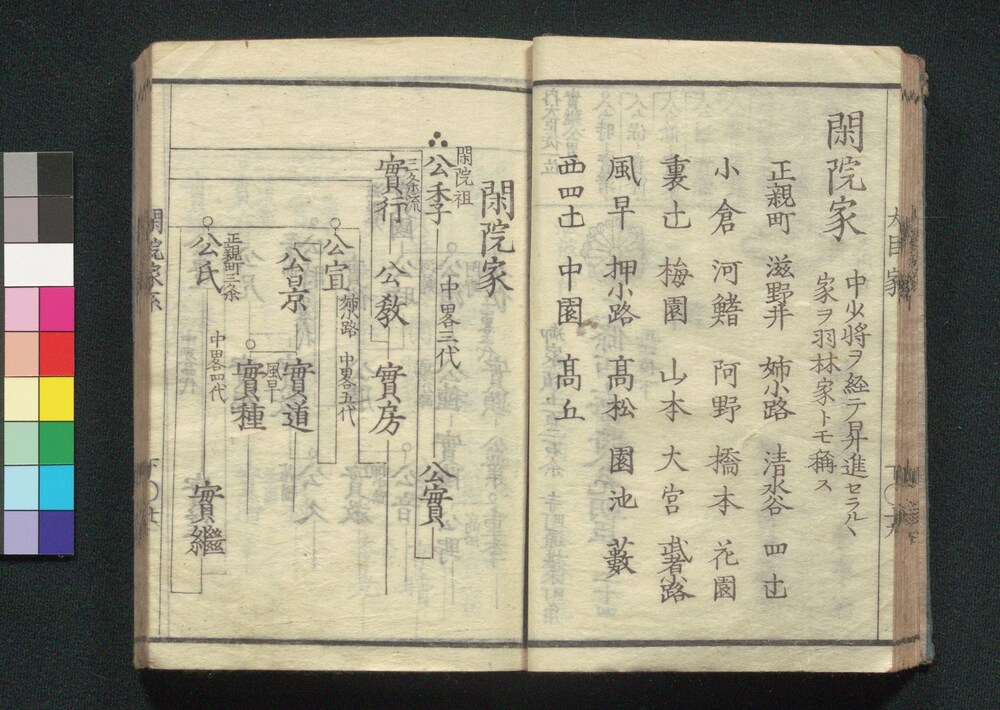 閑院家
中少將ヲ経テ昇進セラルヽ
家ヲ羽林家トモ稱ス
正親町 滋野井 姉小路 清水谷 四辻
小倉 河鰭 阿野 橋本 花園
裏辻 梅園 山本 大宮 武者小路
風早 押小路 髙松 園池 藪
西四辻 中園 髙丘
閑院家
閑院祖
公季 中畧三代 公實
三条流
實行 公教 實房
公宣 姉小路 中畧五代
公景 實道
風早
實種
正親町三条
公氏 中畧四代 實繼
閑院家系